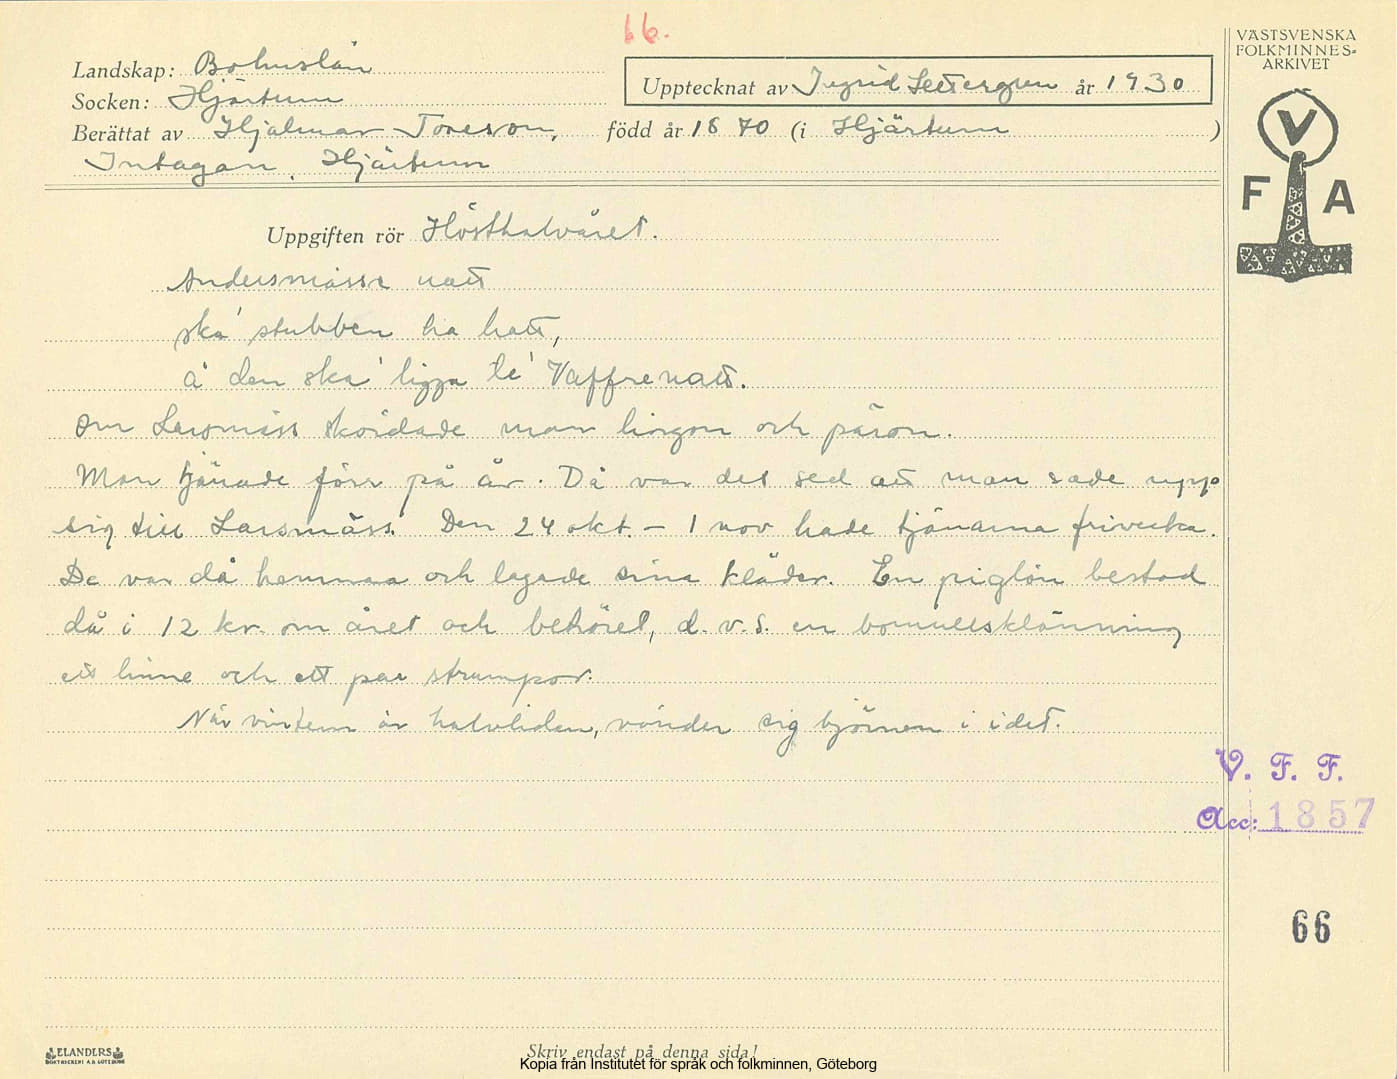 66.
VÄSTSVENSKA
FOLKMINNES-
ARKIVET
Landskap: Bohuslän
Upptecknat av Ingrid Settergren år 1930
Socken: Hjärtum
Berättat av Hjalmar Toreson, född år 1870 (i Hjärtum )
Intagan, Hjärtum
V
F A
Uppgiften rör Hösthalvåret.
Andersmässe natt
ska' stubben ha hatt,
å den ska' ligga te' Vaffrenatt.
Om Larsmäss skördade man lingon och päron.
Man tjänade förr på år. Då var det sed att man sade upp
sig till Larsmäss. Den 24 okt. – 1 nov hade tjänarna frivecka.
De var då hemmaa och lagade sina kläder. En piglön bestod
då i 12 kr. om året och behöret, d.v.s. en bomullsklänning
ett linne och ett par strumpor.
När vintern är halvliden, vänder sig björnen i idet.
V. F. F.
Acc: 1857
66
ELANDERS
BOKTRYCKERI A.B. GÖTEBORG
Skriv endast på denna sida!
Kopia från Institutet för språk och folkminnen, Göteborg